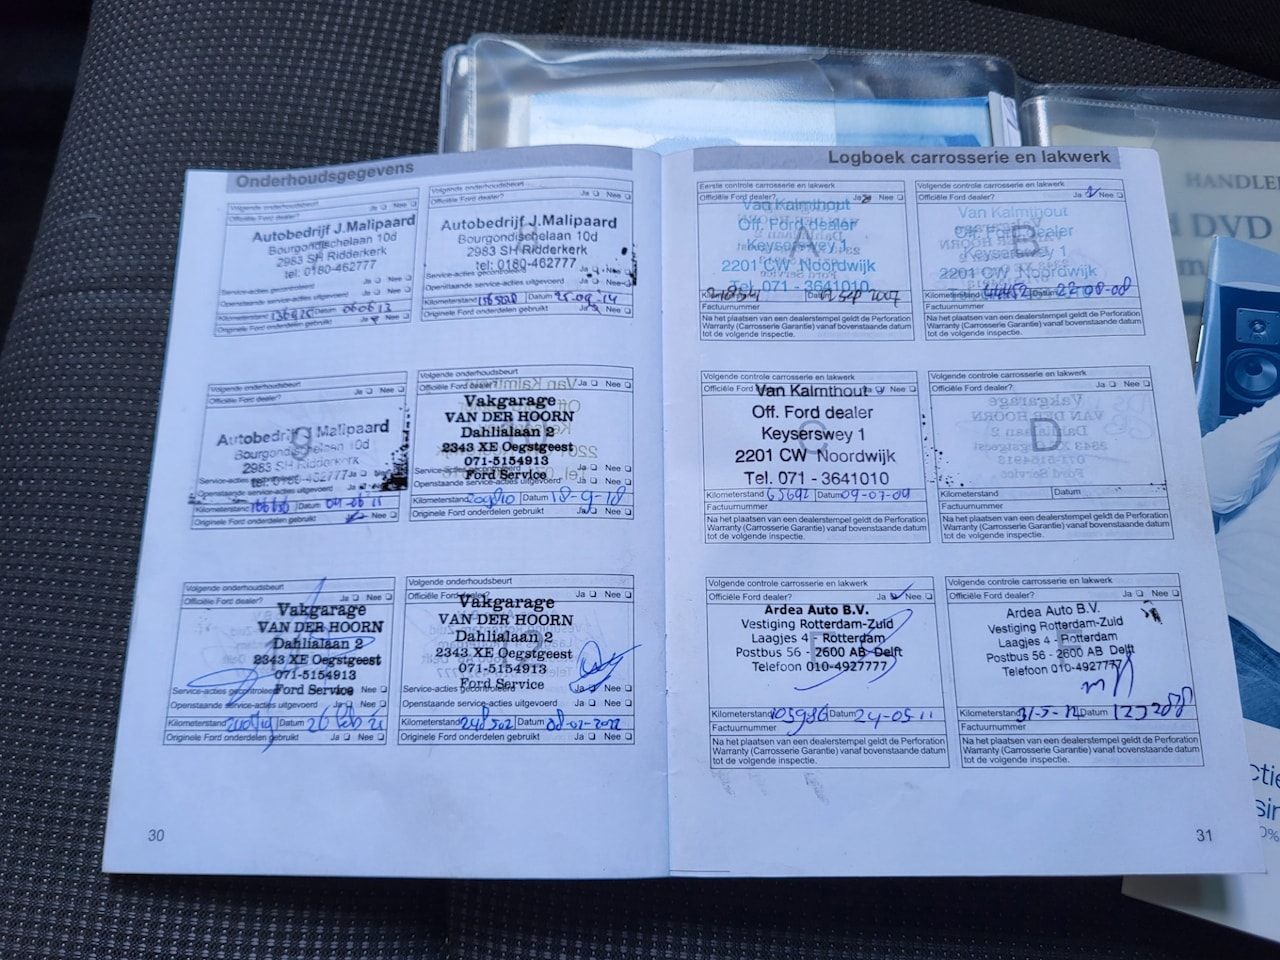 Onderhoudsgegevens
Volgende onderhoudsbeurt
Officiële Ford dealer? Ja Nee
Autobedrijf J.Malipaard
Bourgondischelaan 10d
2983 SH Ridderkerk
tel: 0180-462777
Service-acties gecontroleerd
Openstaande service-acties uitgevoerd Ja Nee
Kilometerstand Datum
Originele Ford onderdelen gebruikt Ja Nee
Volgende onderhoudsbeurt
Officiële Ford dealer? Ja Nee
Autobedrijf J.Malipaard
Bourgondischelaan 10d
2983 SH Ridderkerk
tel: 0180-462777
Service-acties gecontroleerd
Openstaande service-acties uitgevoerd Ja Nee
Kilometerstand Datum
Originele Ford onderdelen gebruikt Ja Nee
Volgende onderhoudsbeurt
Officiële Ford dealer? Ja Nee
Autobedrijf J.Malipaard
Bourgondischelaan 10d
2983 SH Ridderkerk
tel: 0180-462777
Service-acties gecontroleerd
Openstaande service-acties uitgevoerd
Kilometerstand Datum
Originele Ford onderdelen gebruikt Nee
Volgende onderhoudsbeurt
Officiële Ford dealer? Ja Nee
Vakgarage
VAN DER HOORN
Dahlialaan 2
2343 XE Oegstgeest
071-5154913
Ford Service
Service-acties gecontroleerd Ja Nee
Openstaande service-acties uitgevoerd Ja Nee
Kilometerstand Datum 18-9-18
Originele Ford onderdelen gebruikt Ja Nee
Volgende onderhoudsbeurt
Officiële Ford dealer? Ja Nee
Vakgarage
VAN DER HOORN
Dahlialaan 2
2343 XE Oegstgeest
071-5154913
Ford Service
Service-acties gecontroleerd Ja Nee
Openstaande service-acties uitgevoerd Ja Nee
Kilometerstand Datum 26 feb 21
Originele Ford onderdelen gebruikt Ja Nee
Volgende onderhoudsbeurt
Officiële Ford dealer? Ja Nee
Vakgarage
VAN DER HOORN
Dahlialaan 2
2343 XE Oegstgeest
071-5154913
Ford Service
Service-acties gecontroleerd Ja Nee
Openstaande service-acties uitgevoerd Ja Nee
Kilometerstand 248502 Datum 08-02-2022
Originele Ford onderdelen gebruikt Ja Nee
30
Logboek carrosserie en lakwerk
Eerste controle carrosserie en lakwerk
Officiële Ford dealer? Ja Nee
A
Van Kalmthout
Off. Ford dealer
Keyserswey 1
2201 CW Noordwijk
Tel. 071 - 3641010
Sep 2007
Factuurnummer
Na het plaatsen van een dealerstempel geldt de Perforation
Warranty (Carrosserie Garantie) vanaf bovenstaande datum
tot de volgende inspectie.
Volgende controle carrosserie en lakwerk
Ja Nee
B
Van Kalmthout
Off. Ford dealer
Keyserswey 1
2201 CW Noordwijk
Kilometerstand 44452 Datum 22-08-08
Factuurnummer
Na het plaatsen van een dealerstempel geldt de Perforation
Warranty (Carrosserie Garantie) vanaf bovenstaande datum
tot de volgende inspectie.
Volgende controle carrosserie en lakwerk
Officiële Ford dealer? Ja Nee
C
Van Kalmthout
Off. Ford dealer
Keyserswey 1
2201 CW Noordwijk
Tel. 071 - 3641010
Kilometerstand 65692 Datum 09-07-09
Factuurnummer
Na het plaatsen van een dealerstempel geldt de Perforation
Warranty (Carrosserie Garantie) vanaf bovenstaande datum
tot de volgende inspectie.
Volgende controle carrosserie en lakwerk
Officiële Ford dealer? Ja Nee
D
Kilometerstand Datum
Factuurnummer
Na het plaatsen van een dealerstempel geldt de Perforation
Warranty (Carrosserie Garantie) vanaf bovenstaande datum
tot de volgende inspectie.
Volgende controle carrosserie en lakwerk
Officiële Ford dealer? Ja Nee
Ardea Auto B.V.
Vestiging Rotterdam-Zuid
Laagjes 4 - Rotterdam
Postbus 56 - 2600 AB Delft
Telefoon 010-4927777
Kilometerstand 103986 Datum 24-05-11
Factuurnummer
Na het plaatsen van een dealerstempel geldt de Perforation
Warranty (Carrosserie Garantie) vanaf bovenstaande datum
tot de volgende inspectie.
Volgende controle carrosserie en lakwerk
Officiële Ford dealer? Ja Nee
Ardea Auto B.V.
Vestiging Rotterdam-Zuid
Laagjes 4 - Rotterdam
Postbus 56 - 2600 AB Delft
Telefoon 010-4927777
Kilometerstand 31-5-12 Datum
Factuurnummer
Na het plaatsen van een dealerstempel geldt de Perforation
Warranty (Carrosserie Garantie) vanaf bovenstaande datum
tot de volgende inspectie.
31
DVD